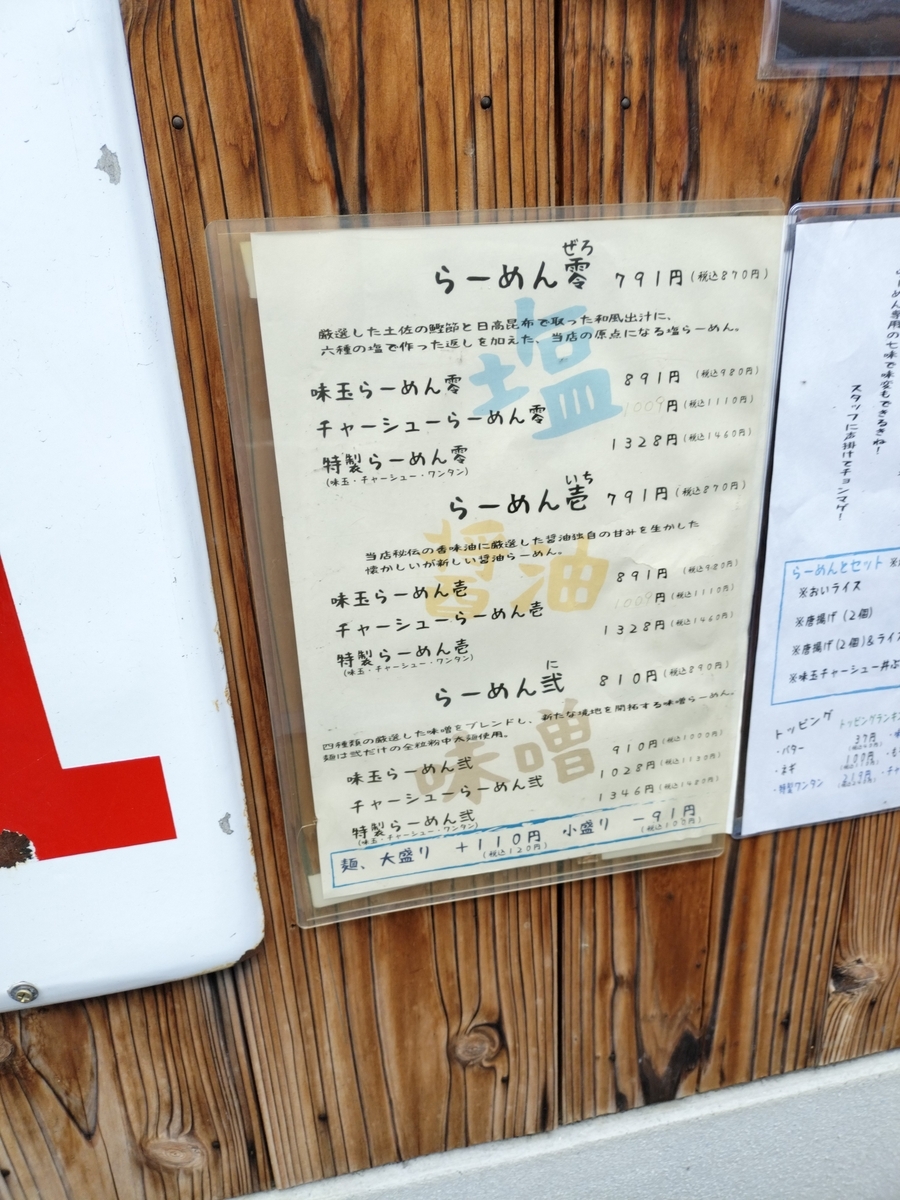 ぜろ
らーめん零 791円(税込870円)
塩
厳選した土佐の鰹節と日高昆布で取った和風出汁に、
六種の塩で作った返しを加えた、当店の原点になる塩らーめん。
味玉らーめん零 891円 (税込980円)
チャーシューらーめん零 1009円(税込1110円)
特製らーめん零 1328円(税込1460円)
(味玉・チャーシュー・ワンタン)
いち
らーめん壱 791円(税込870円)
醤油
当店秘伝の香味油に厳選した醤油独自の甘みを生かした
懐かしいが新しい醤油らーめん。
味玉らーめん壱 891円 (税込980円)
チャーシューらーめん壱 1009円(税込1110円)
特製らーめん壱 1328円(税込1460円)
(味玉・チャーシュー・ワンタン)
に
らーめん弐 810円(税込890円)
味噌
四種類の厳選した味噌をブレンドし、新たな境地を開拓する味噌らーめん。
麺は弐だけの全粒粉中太麺使用。
味玉らーめん弐 910円(税込1000円)
チャーシューらーめん弐 1028円(税込1130円)
特製らーめん弐 1346円(税込1480円)
(味玉・チャーシュー・ワンタン)
麺、大盛り +110円 小盛り -91円
(税込120円) (税込100円)
らーめん専用の七味で味変もできるきね!
スタッフに声掛けてチョンマゲ!
らーめんとセット
※おいライス
※唐揚げ(2個)
※唐揚げ(2個)&ライス
※味玉チャーシュー丼
トッピング
トッピングランキ
・バター 37円
・ネギ 109円
・特製ワンタン 219円